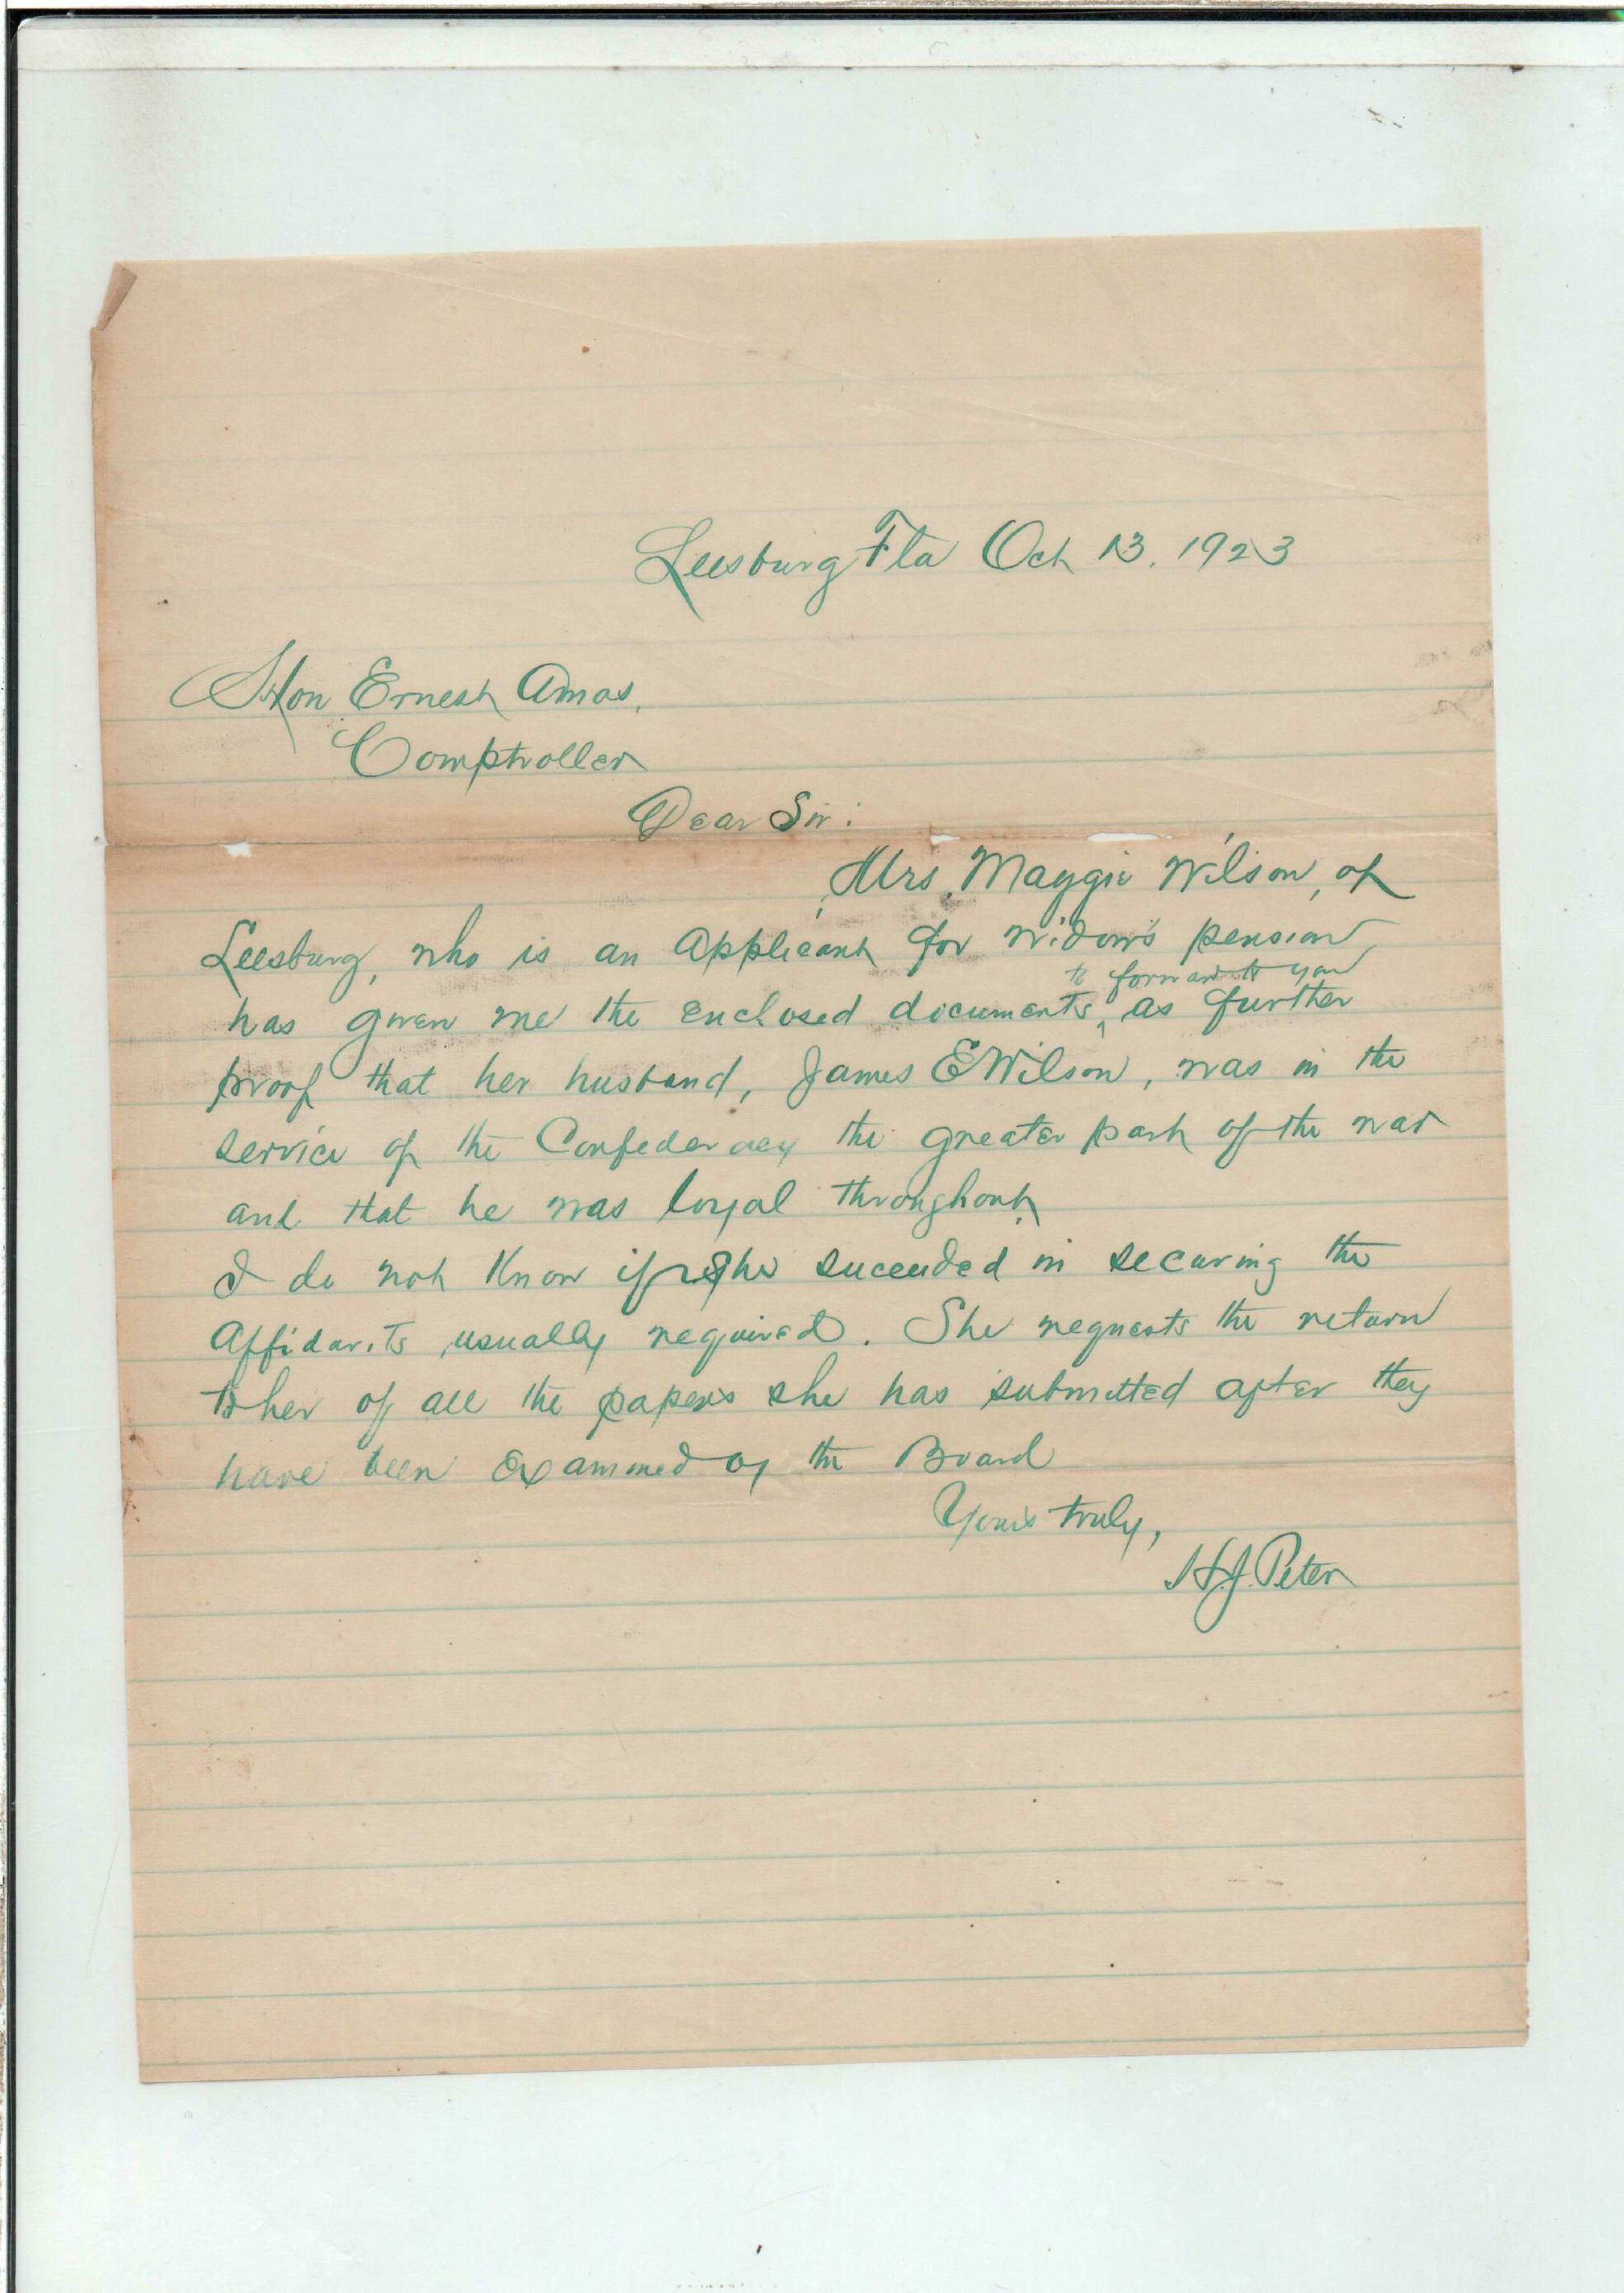 Leesburg Fla Oct 13, 1923
Hon Ernest Amos,
Comptroller
Dear Sir:
Mrs. Maggie Wilson, of
Leesburg, who is an applicant for widow's pension,
to forward to you
has given me the enclosed documents ^ as further
proof that her husband, James E Wilson, was in the
service of the Confederacy the greater part of the war
and that he was loyal throughout.
I do not know if she succeeded in securing the
Affidavits usually required. She requests the return
to her of all the papers she has submitted after they
have been examined by the Board
Yours truly,
H.J. Peter